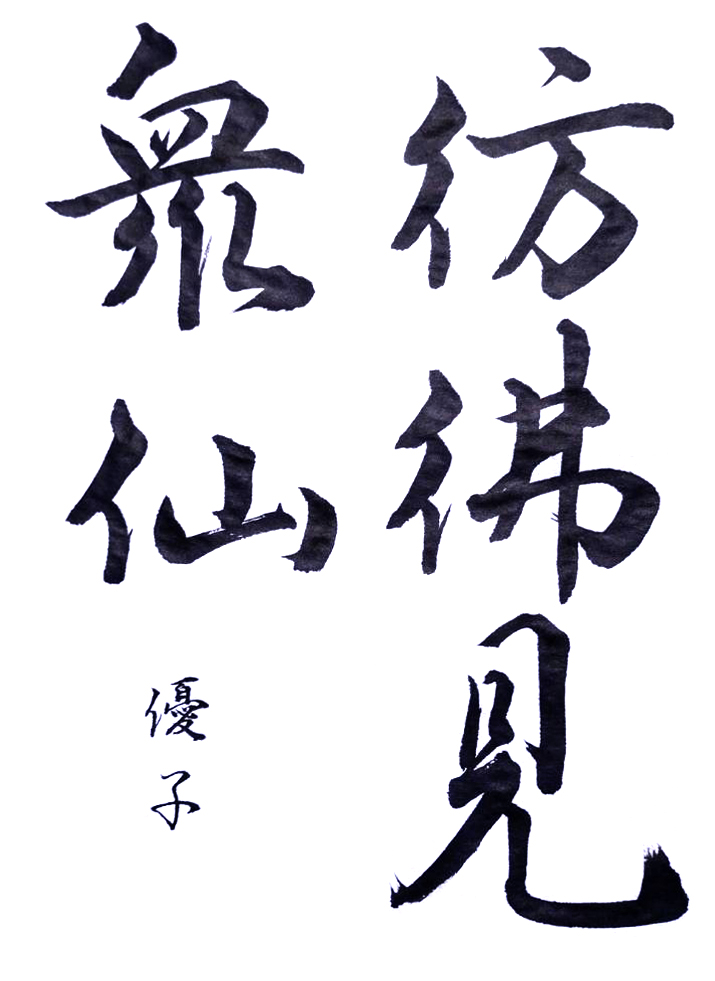 彷彿見
衆仙
優子